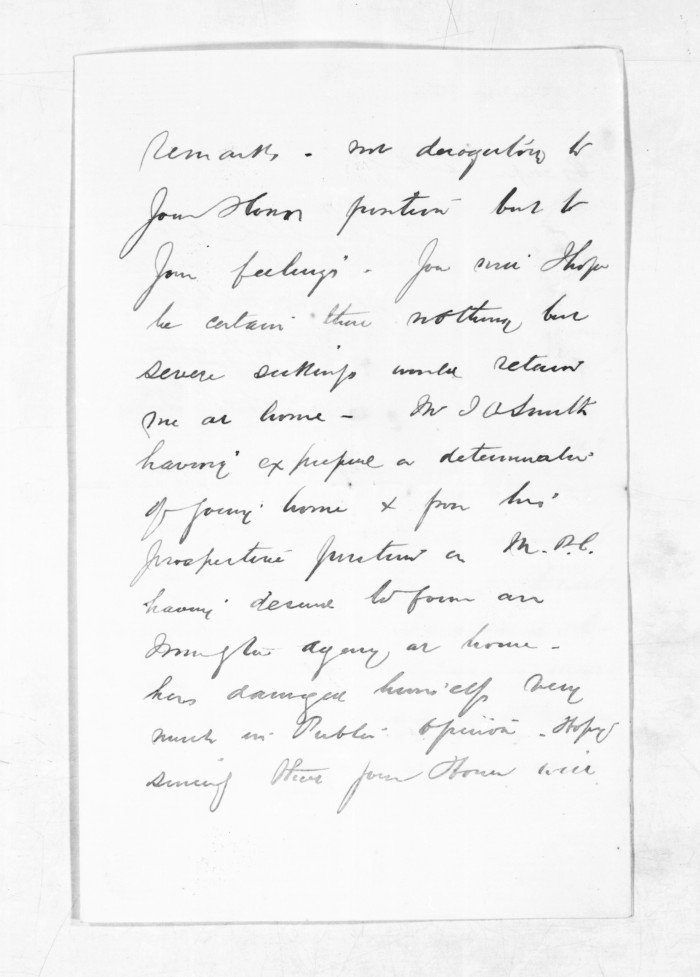 remarks - not derogatory to
Your Honor position but to
Your feelings - You will I hope
be certain that nothing but
severe sickness would retain
me at home - Mr J A Smith
having expressed a determination
of going home & from his
prospective position as M.P.C.
having desired to form an
agency at home -
has damaged himself very
much in Public opinion - Hope
sincerely that your Honor will